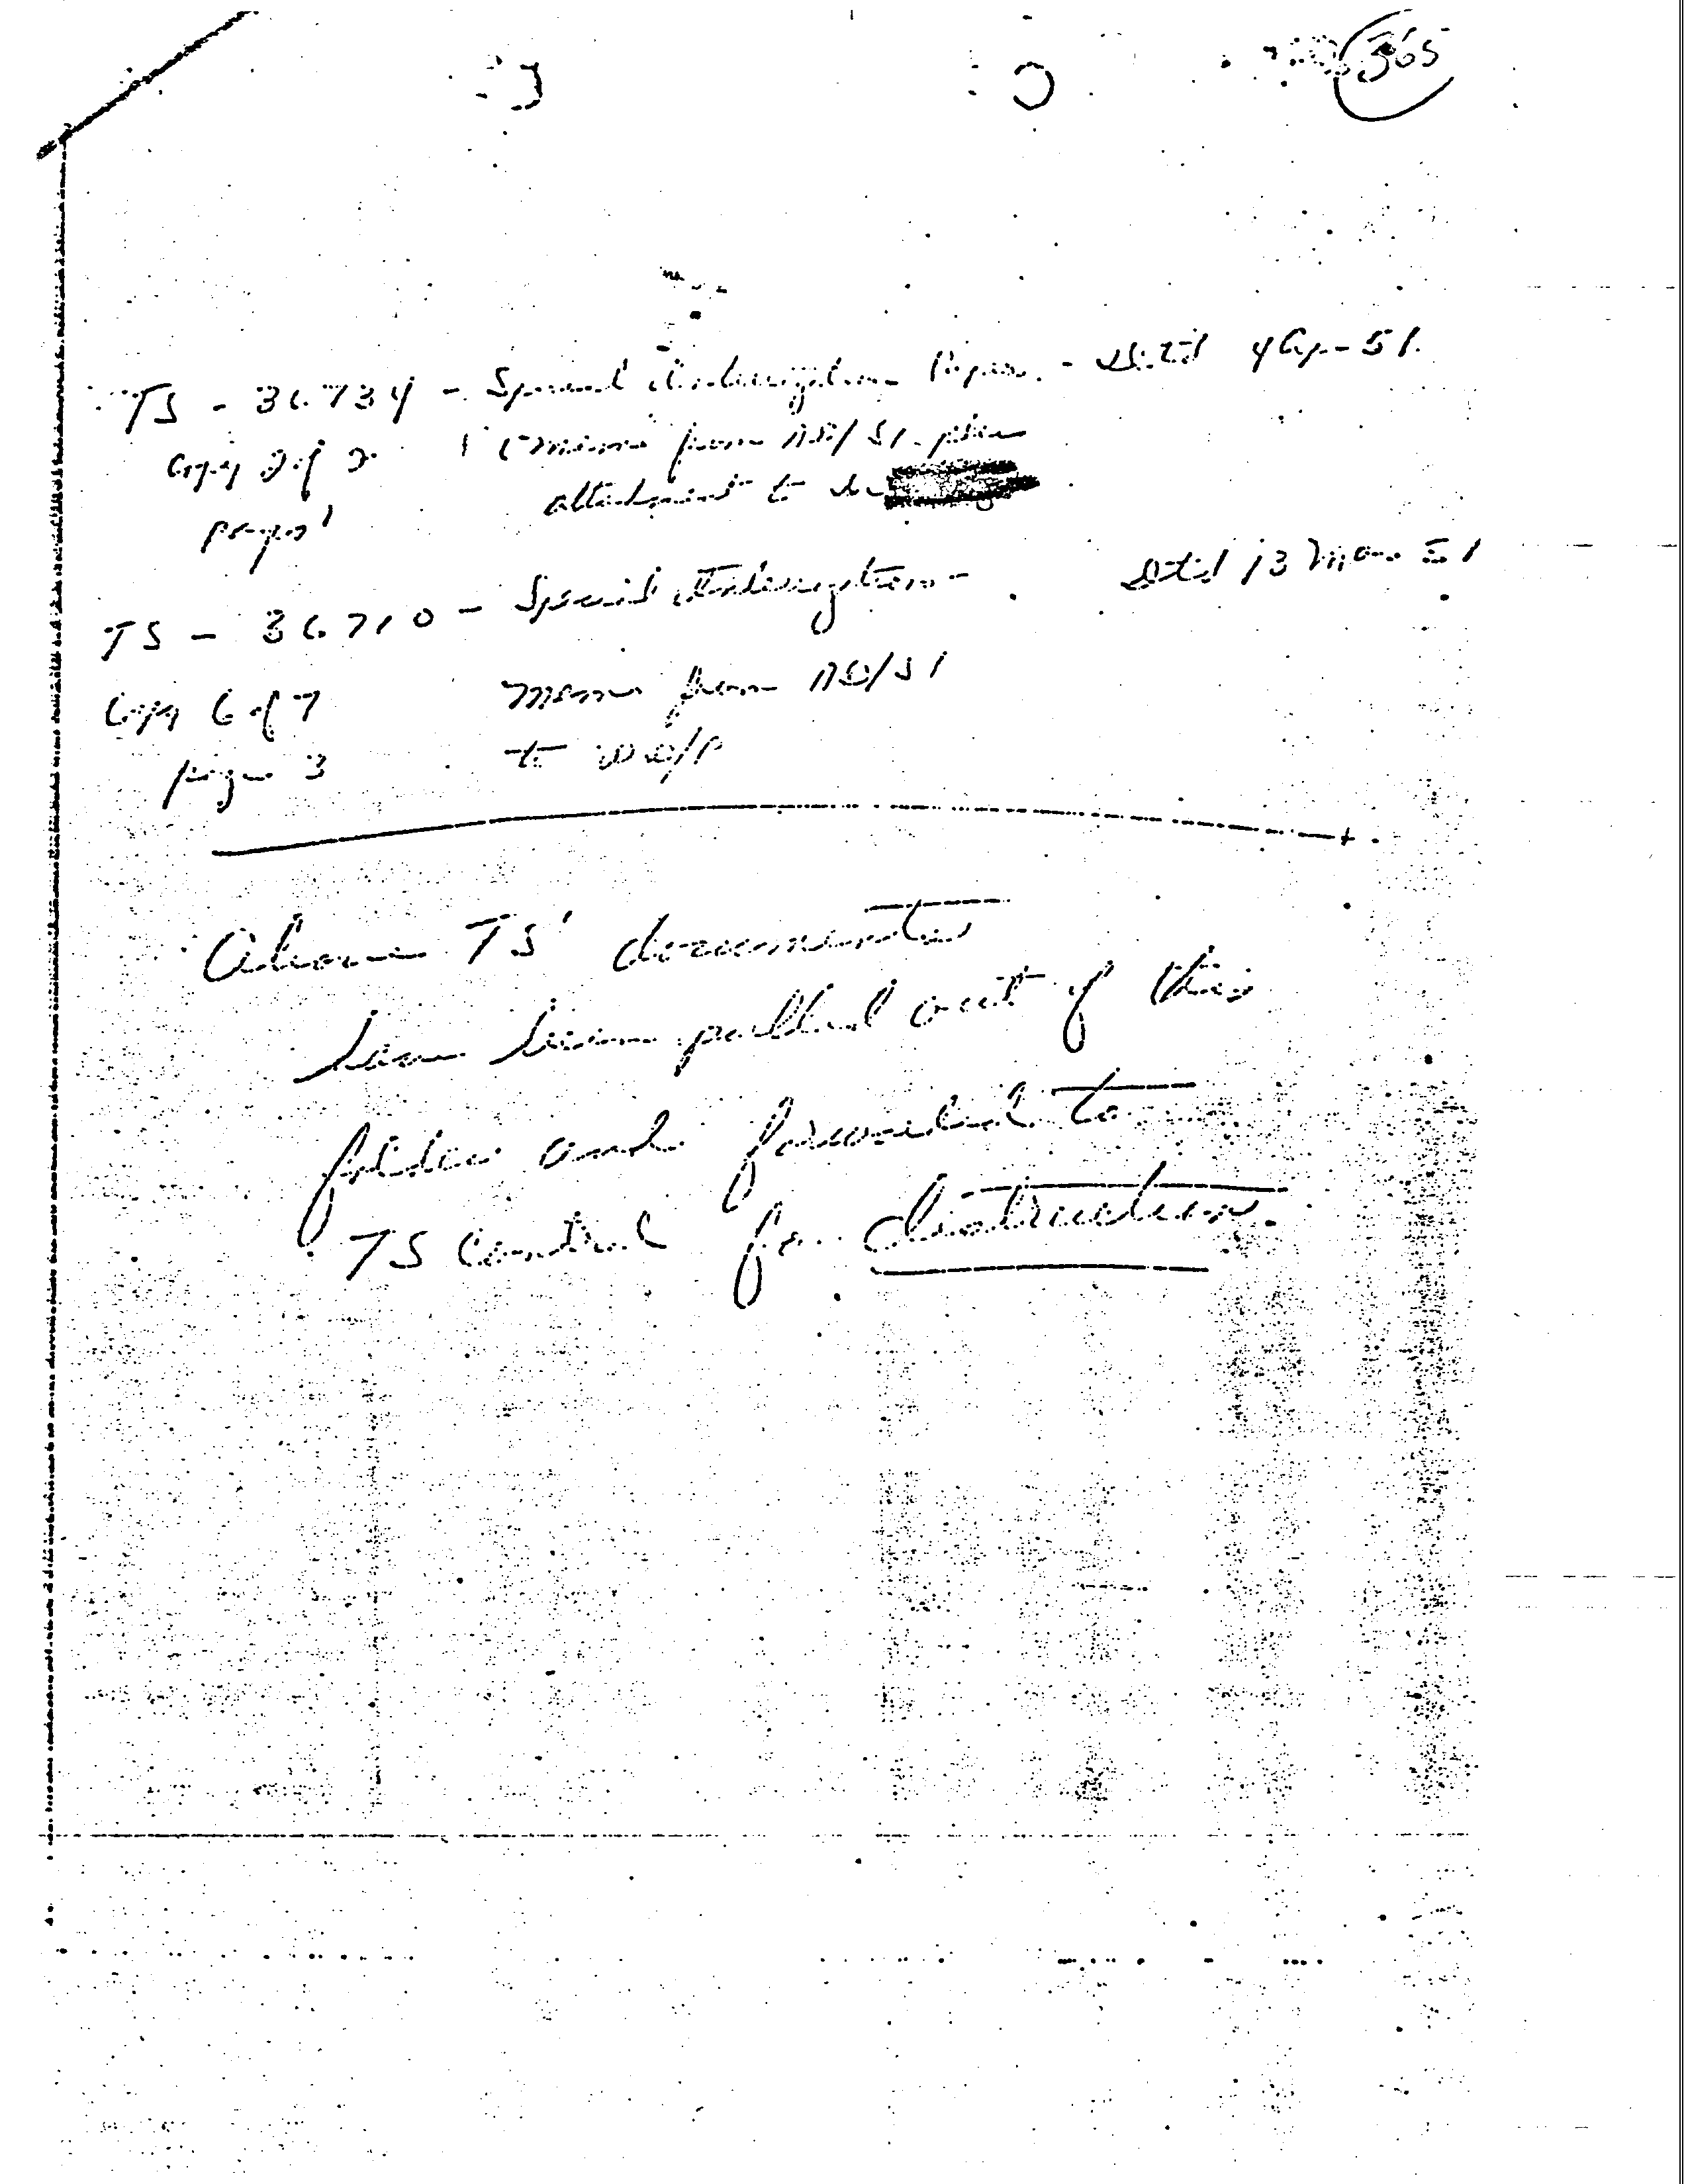 365
TS - 36734 - Special Interrogation - Dtd 4 Ap- 51
Copy 2 of 2 Memo from AD/SI plus
pages 1 attachment to
TS - 36710 - Special Interrogation - Dtd 13 Mar 51
Copy 6 of 7 Memo from AD/SI
pages 3 to
Above TS documents
have been pulled out of this
folder and forwarded to
TS Control for destruction.